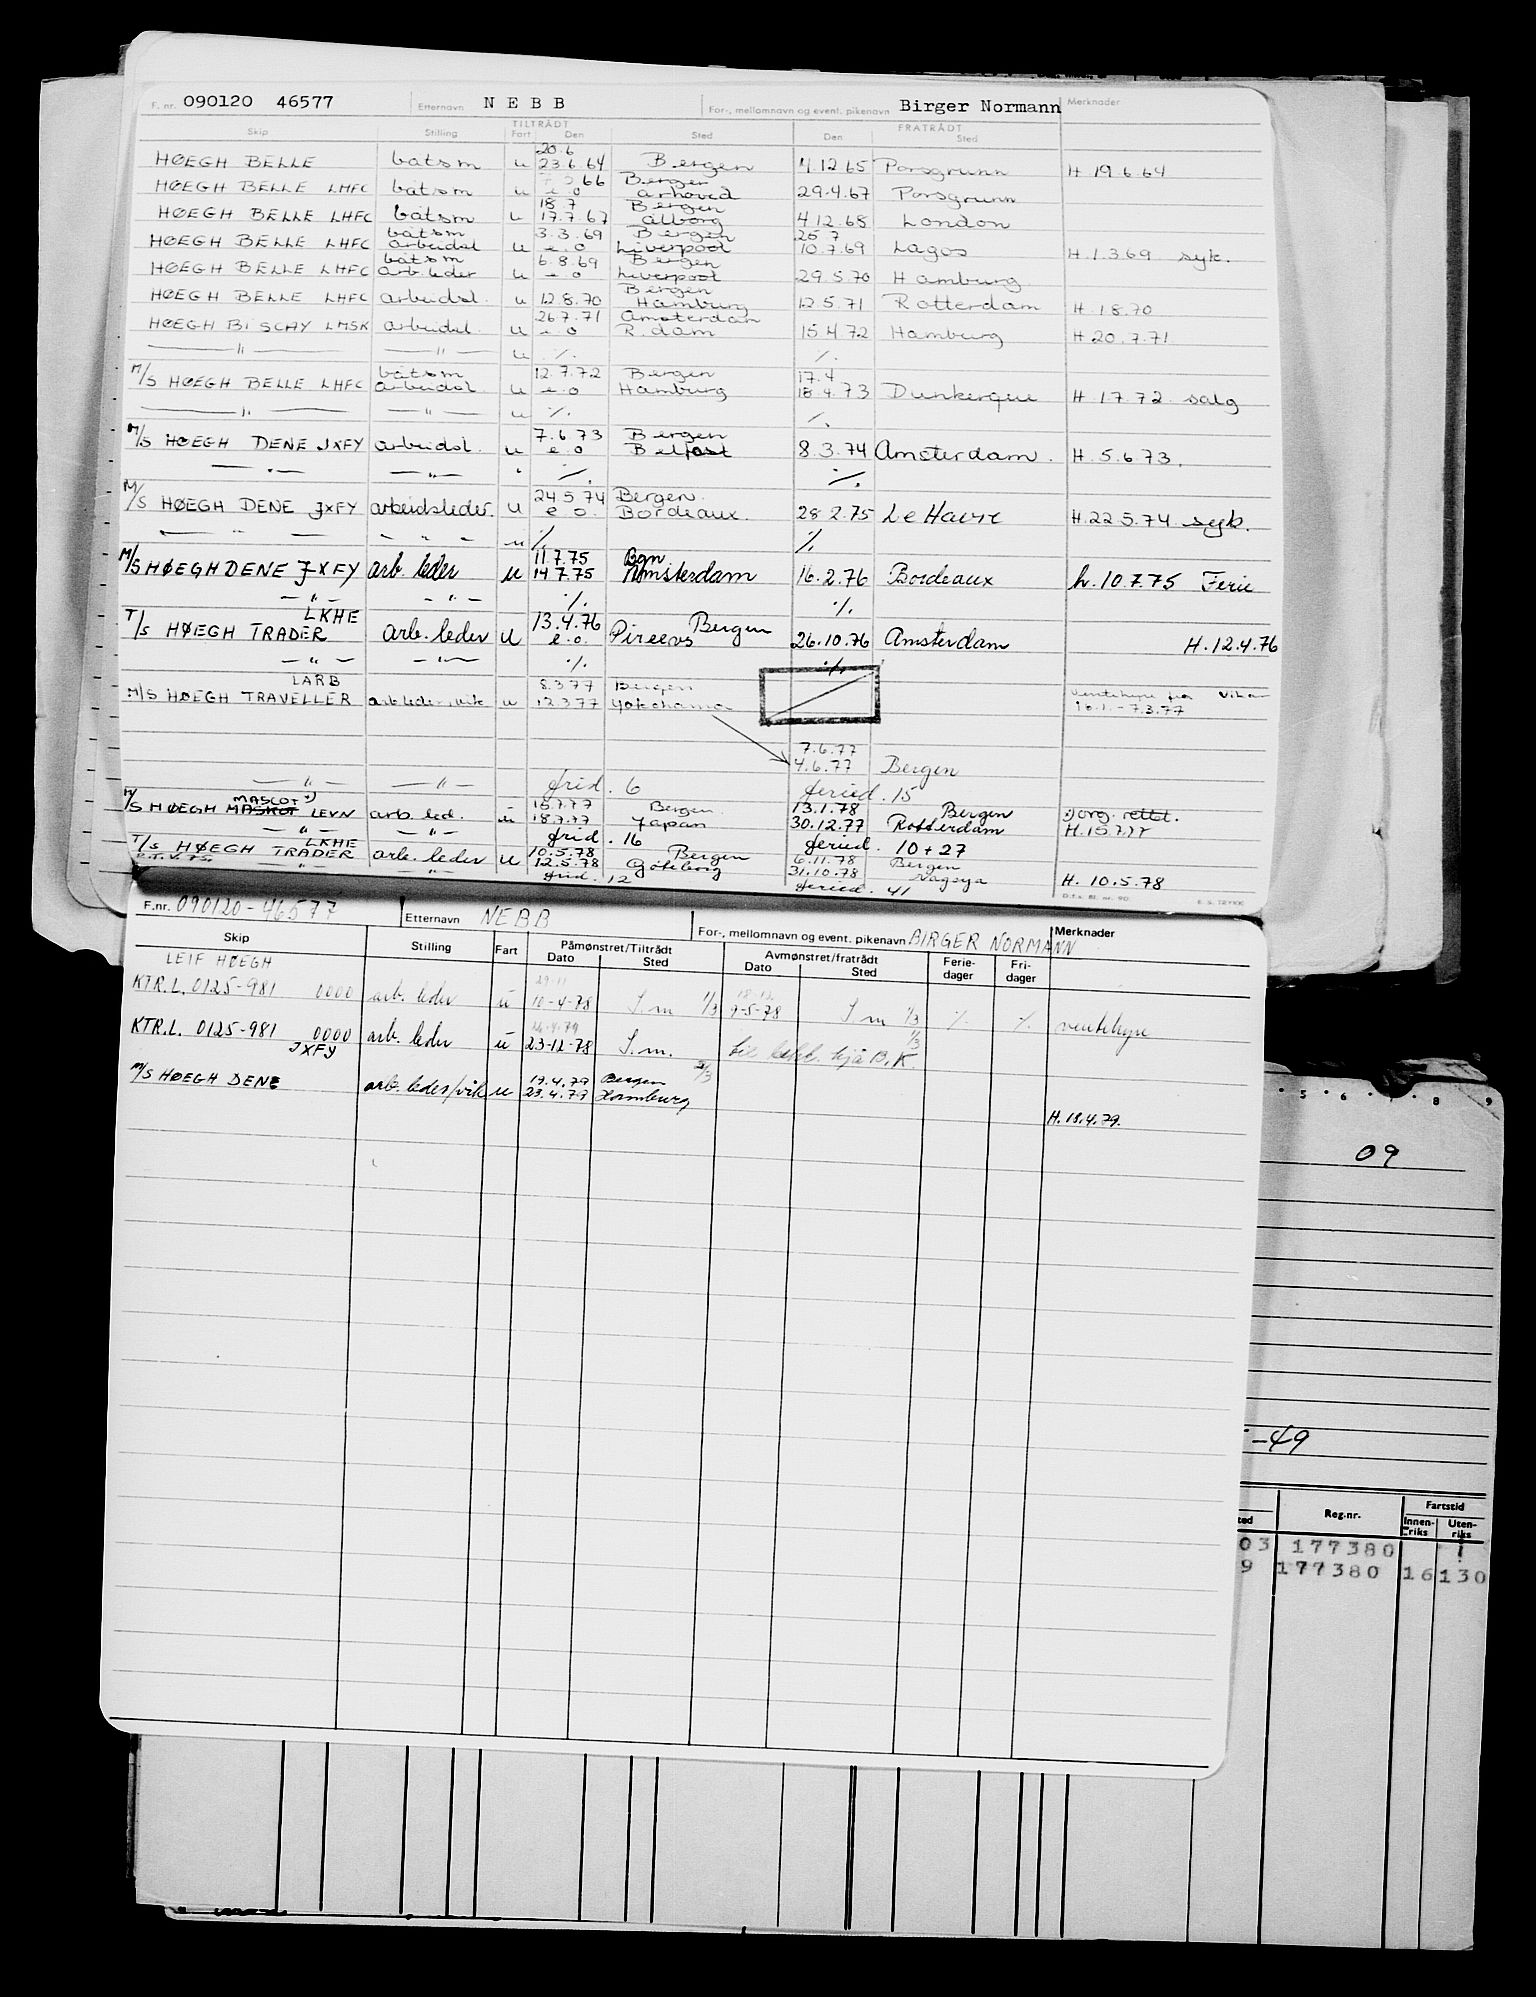 F. nr. 090120 46577 Etternavn NEBB For-, mellomnavn og event. pikenavn Birger Normann Merknader
Skip Stilling TILTRÅDT Fart Den Sted FRATRÅDT Den Sted
20.6
HØEGH BELLE båtsm u 23.6.64 Bergen 4.12.65 Porsgrunn H 19.6.64
66 Bergen
HØEGH BELLE LHFC båtsm u e.o Århoved 29.4.67 Porsgrunn
18.7 Bergen
HØEGH BELLE LHFC båtsm u 17.7.67 Ålborg 4.12.68 London
båtsm 3.3.69 Bergen 25 7
HØEGH BELLE LHFC arbeidsl u e.o Liverpool 10.7.69 Lagos H.1.3.69 syk.
båtsm 6.8.69 Bergen
HØEGH BELLE LHFC arb.leder u e.o Liverpool 29.5.70 Hamburg
Bergen
HØEGH BELLE LHFC arbeidsl. u 12.8.70 Hamburg 12.5.71 Rotterdam H.1.8.70
26.7.71 Amsterdam
HØEGH BISCAY LMSK arbeidsl. u e.o R.dam 15.4.72 Hamburg H 20.7.71
— " — — " — u ·/. ·/.
båtsm 12.7.72 Bergen 17.4
M/S HØEGH BELLE LHFC arbeidsl. u e.o Hamburg 18.4.73 Dunkerque H.1.7.72 salg
— " — — " — u ·/. ·/.
7.6.73 Bergen
M/S HØEGH DENE JXFY arbeidsl. u e.o Belfast 8.3.74 Amsterdam. H.5.6.73.
— " — — " — " ·/. ·/.
24.5.74 Bergen.
M/S HØEGH DENE JXFY arbeidsleder. u e.o. Bordeaux. 28.2.75 Le Havre H.22.5.74 syk.
— " — — " — u ·/. ·/.
11.7.75 Bgn
M/S HØEGH DENE JXFY arb. leder u 14.7.75 Amsterdam 16.2.76 Bordeaux h.10.7.75 Ferie
— " — — " — ·/. ·/.
LKHE 13.4.76 Bergen
T/S HØEGH TRADER arb. leder u e.o. Pireevs 26.10.76 Amsterdam H.12.4.76
— " — — " — ·/. ·/.
LARB 8.3.77 Bergen ventehyre fra Vikar
M/S HØEGH TRAVELLER arb leder.vik u 12.3.77 Yokohama 16.1.-7.3.77
7.6.77
4.6.77 Bergen
— " — — " — frid. 6 feried. 15
MASCOT *) 15.7.77 Bergen 13.1.78 Bergen
M/S HØEGH MASKOT LEVN arb. led. u 18.7.77 Japan 30.12.77 Rotterdam H.15.7.77
— " — — " — frid. 16 feried. 10+27
LKHE 10.5.78 Bergen 6.11.78 Bergen
T/S HØEGH TRADER arb. leder u 12.5.78 Göteborg 31.10.78 Nagoya H. 10.5.78
" — " — frid. 12 feried. 41
D.f.s. Bl. nr. 90
F.nr. 090120-46577 Etternavn NEBB For-, mellomnavn og event. pikenavn BIRGER NORMANN Merknader
Skip Stilling Fart Påmønstret/Tiltrådt Dato Sted Avmønstret/fratrådt Dato Sted Ferie-dager Fri-dager
LEIF HØEGH 29-11 18-12
KTR.L. 0125-981 0000 arb. leder u 10-4-78 S.m 1/3 9-5-78 S m 1/3 ·/. ·/. ventehyre
26.4.79 1/3
KTR.L. 0125-981 0000 arb. leder u 23-12-78 S.m. B.K.
JXFY
M/S HØEGH DENE arb. leder/vik u 19.4.79 Bergen
23.4.79 Hamburg
H.18.4.79.
5 6 7 8 9
09
-49
Reg.nr. Fartstid
Innen-riks Uten-riks
03 177380
9 177380 16 130